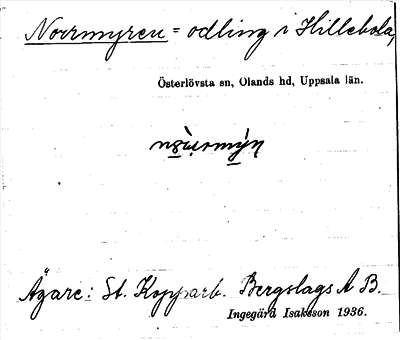 Norrmyren = odling i Hillebola,
Österlövsta sn, Olands hd, Uppsala län.
Ägare: St. Kopparb. Bergslags A B.
Ingegärd Isaksson 1936.